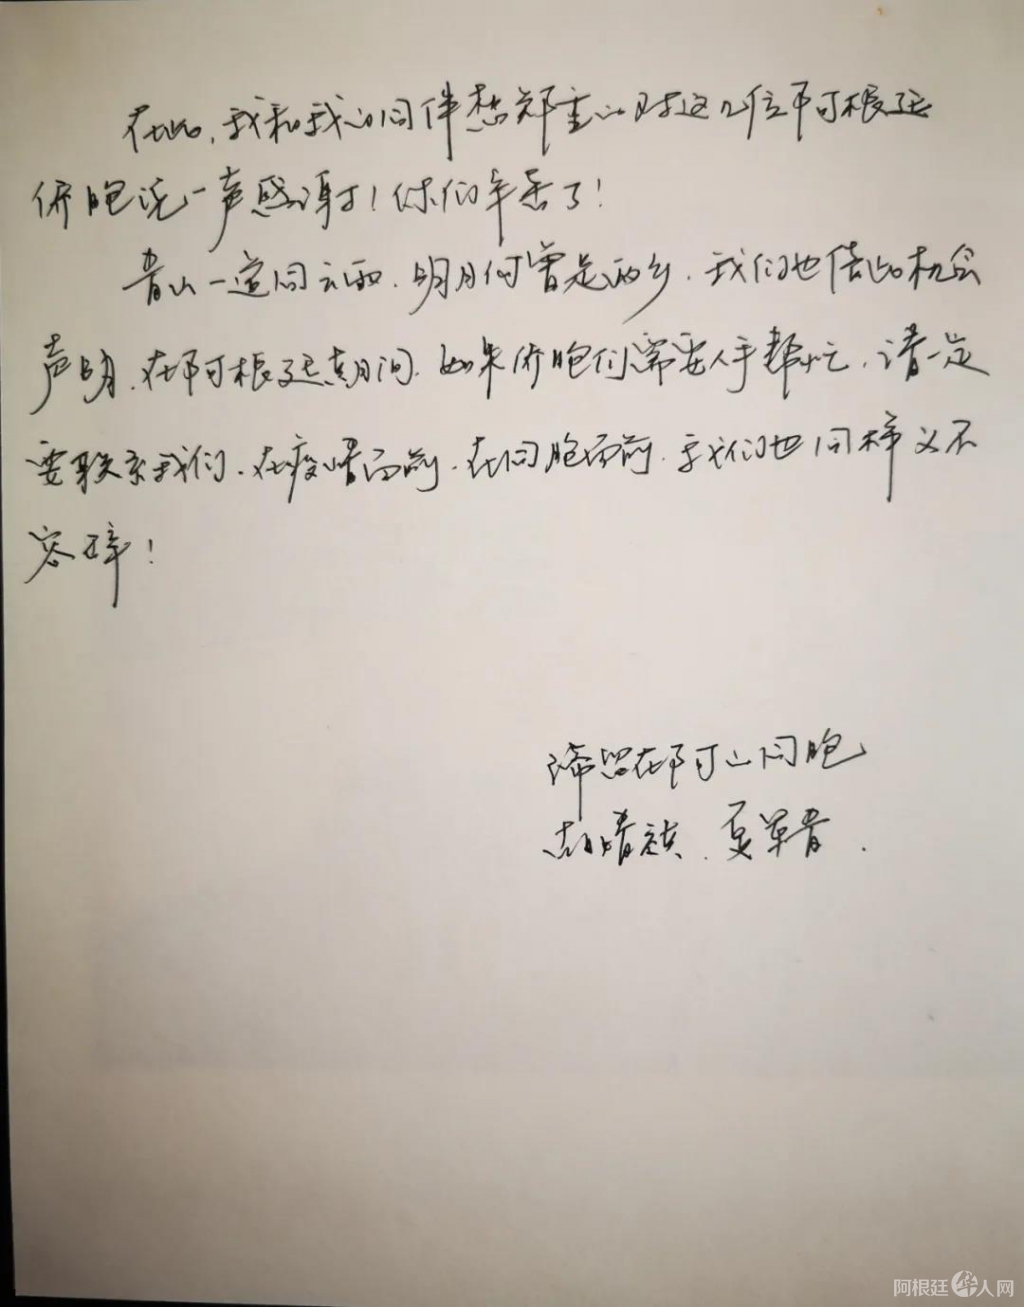 在此，我和我的同伴想郑重的对这几位阿根廷
侨胞说一声感谢！你们辛苦了！
青山一道同云雨，明月何曾是两乡，我们也借此机会
声明，在阿根廷期间，如果侨胞们需要人手帮忙，请一定
要联系我们，在疫情面前，在同胞面前，我们也同样义不
容辞！
滞留在阿的同胞
夏草青
阿根廷华人网